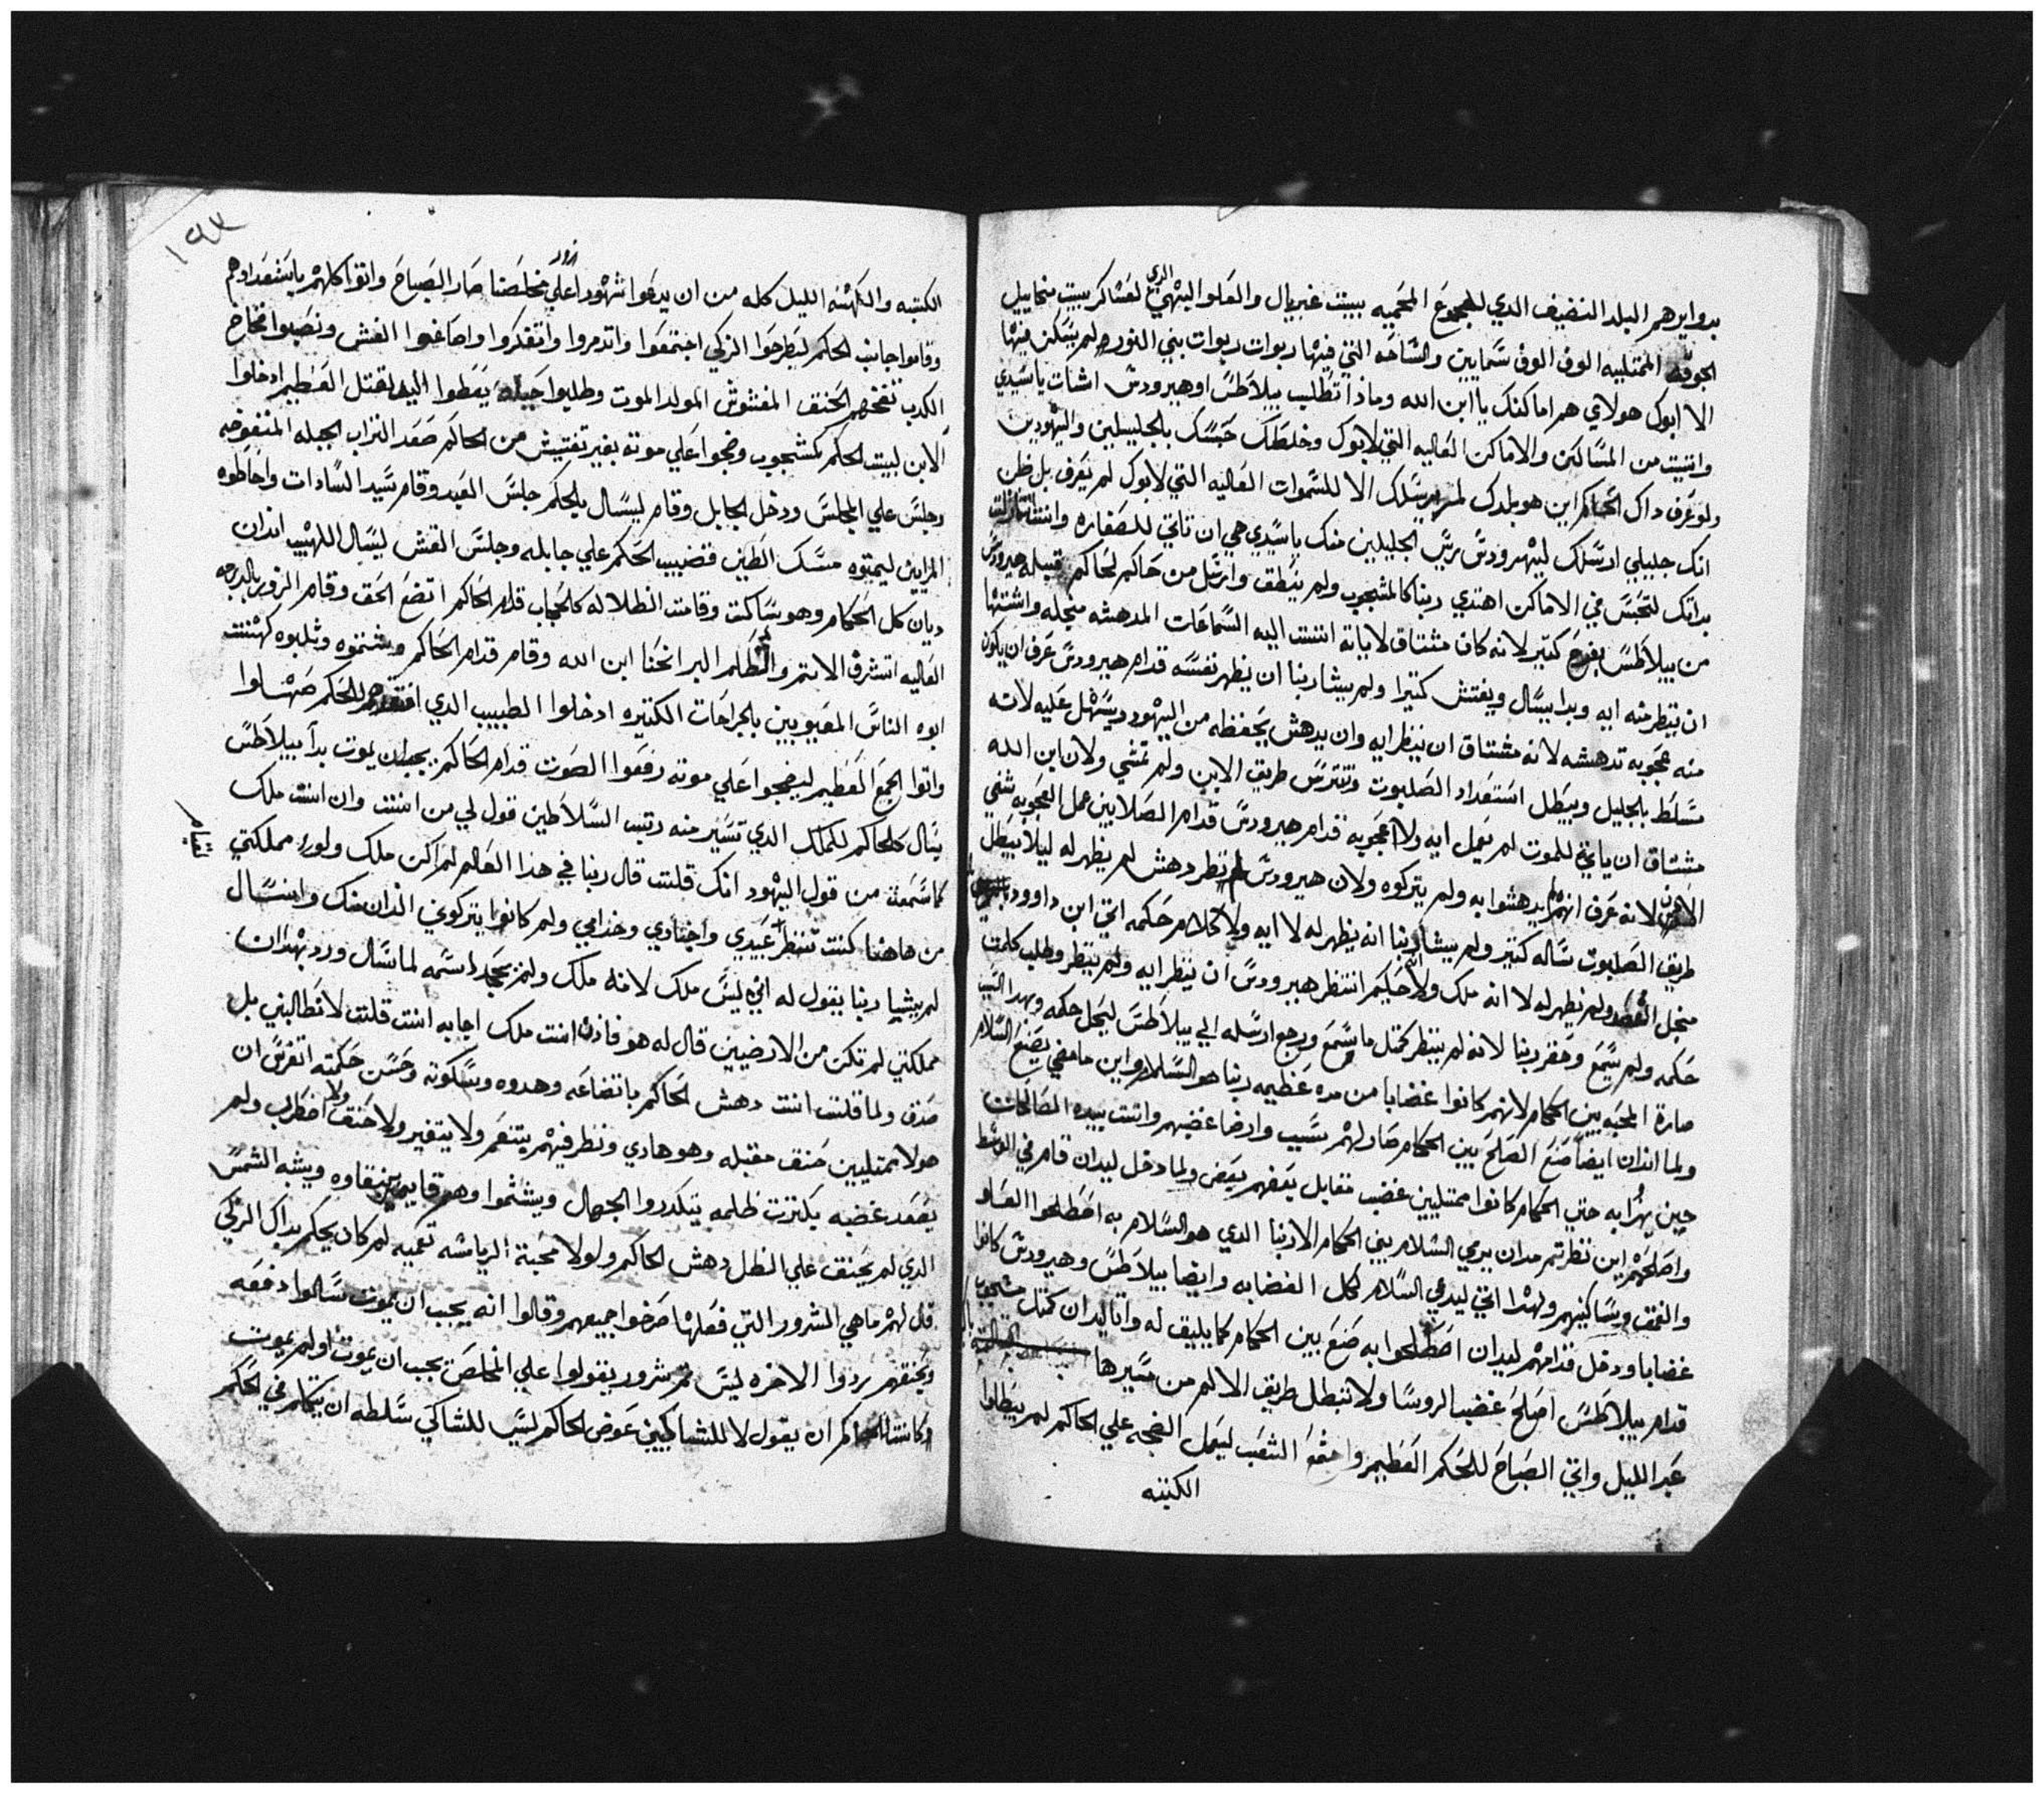 بدوايرهم البلد النضيف الدي للجموع المحميه ببيت غبريال والعلو البهي الدي لعشاكر ببيت منحاييل
الجوقه الممتليه الوف الوف سمايين والساحه التي فيها ربوات ربوات بني النور ولم يسكن فيها
الا ابوك هولاي هم اماكنك يا ابن الله وماذا تطلب بيلاطس او هيرودس اشات يا سيدي
واتيت من المساكن والاماكن العاليه التي لابوك وخلطك حبسك بالجليلين واليهودين
ولو عرف داك الحاكم اين هو بلدك لم يرسلك الا للسموات العاليه التي لابوك لم يعرف بل ظن
انك جليلي ارسلك ليهرودس ريس الجليلين منك يا سيدي هي ان تاتي للصغاره وانت تنازلت
بداتك لتحبس في الاماكن اهتدي ربنا كالمشجوب ولم ينطق وارسل من حاكم لحاكم قبله هيرودس
من بيلاطس بفرح كتير لانه كان مشتاق لاياته اتت اليه السماعات المدهشه منجله واشتها
ان ينظر منه ايه وبدا يسال ويفتش كتيرا ولم يشا ربنا ان يظهر نفسه قدام هيرودس عرف ان يكون
منه عجوبه تدهشه لانه مشتاق ان ينظر ايه وان يدهش يحفظه من اليهود ويسهل عليه لانه
مسلط بالجليل ويبطل استعداد الصلبوت وتترس طريق الابن ولم تمشي ولان ابن الله
مشتاق ان ياتي للموت لم يعمل ايه ولا عجوبه قدام هيرودس قدام الصلابين عمل العجوبه شفي
الادن لانه عرف انهم لم يدهشوا به ولم يتركوه ولان هيرودس لم نظر دهش لم يظهر له ليلا يبطل
طريق الصلبوت ساله كتير ولم يشا ربنا انه يظهر له لا ايه ولا كلام حكمه اتي ابن داوود
منجل ولم يظهر له لا انه ملك ولا حكيم انتظر هيرودس ان ينظر ايه ولم ينظر وطلب كلمت
حكمه ولم يسمع وحقر ربنا لانه لم ينظر كمتل ما سمع ورجع ارسله الي بيلاطس ليحل حكمه وبهدا السبب
صارة المحبه بين الحكام لانهم كانوا غضابا من مده عظيمه ربنا هو السلام واين ما مضي يصنع السلام
ولما اندان ايضا صنع الصلح بين الحكام صار لهم بسبب وارضا غضبهم واتت بيده المصالحات
حين يهزا به حتي الحكام كانوا ممتليين غضب مقابل بعضهم بعض ولما دخل ليدان قام في الوسط
واصلحهم اين نظرتم مدان يرمي السلام بني الحكام الا ربنا الدي هو السلام به اصطلحوا العلو
والعمق وساكنيهم ولهدا اتي ليدعي السلام لكل الغضابه وايضا بيلاطس وهيرودس كانوا
غضابا ودخل قدامهم ليدان اصطلحوا به صنع بين الحكام كما يليق له واتا ليدان كمتل مشجوب
قدام بيلاطس اصلح غضب الروسا ولا تبطل طريق الالم من مسيرها
عبر الليل واتي الصباح للحكم العظيم واجتمع الشعب ليعمل الضجه علي الحاكم لم يبطلوا
الكتبه
١٩٣
الكتبه والكهنه الليل كله من ان يدعوا شهود زور علي مخلصنا صار الصباح واتوا كلهم باستعدادهم
وقاموا جانب الحكم ليطرحوا الزكي اجتمعوا واتدمروا واتفكروا واصاغوا الغش ونصبوا فخاخ
الكدب نفخهم الحنق المغشوش المولد الموت وطلبوا حيله يعطوا اليد لقتل العظيم ادخلوا
الابن لبيت الحكم كمشجوب وضجوا علي موته بغير تفتيش من الحاكم صعد التراب الجبله المنفوخه
وجلس علي المجلس ودخل الجابل وقام ليسال بالحكم جلس العبد وقام سيد السادات واحاطوه
المرايين ليميتوه مسك الطين قضيب الحكم علي جابله وجلس القش ليسال اللهيب اندان
ديان كل الحكام وهو ساكت وقامت الظلاله كالحجاب قدام الحاكم اتضع الحق وقام الزور بالدرجه
العاليه اتشرف الاتم والظلم البر انحنا ابن الله وقام قدام الحاكم وشتموه وثلبوه كهنت
ابوه الناس المعيوبين بالجراحات الكتيره ادخلوا الطبيب الدي افتقدهم للحكم صهلوا
واتوا الجمع العظيم ليضجوا علي موته رفعوا الصوت قدام الحاكم يجب ان يموت بدا بيلاطس
يسال كالحاكم للملك الدي تسير منه رتب السلاطين قول لي من انت وان انت ملك
كما سمعت من قول اليهود انك قلت قال ربنا في هدا العالم لم اكن ملك ولو مملكتي
من هاهنا كنت تنظر عبيدي واجنادي وخدامي ولم كانوا يتركوني اندان منك وانسال
لم يشيا ربنا يقول له اني ليس ملك لانه ملك ولم يجحد اسمه لما سال ورد بهدان
مملكتي لم تكن من الارضيين قال له هو فادن انت ملك اجابه انت قلت لا تطالبني بل
صدق ولما قلت انت دهش الحاكم باتضاعه وهدوه وسكوته وحسن حكمته اتفرس ان
هولا ممتليين حنق مقبله وهو هادي ونظر فيهم يتنعم ولا يتغير ولا حنق ولا اضطرب ولم
يصعد غضبه بكترت ظلمه يتكدروا الجهال ويشتموا وهو قايم بنقاوه ويشبه الشمس
الدي لم يحنق علي الظل دهش الحاكم ولولا محبة الرياسه تعميه لم كان يحكم بداك الزكي
قال لهم ما هي الشرور التي فعلها صرخوا جميعهم وقالوا انه يجب ان يموت سالوا دفعه
وبحنقهم يردوا الاخره ليس تم شرور يقولوا علي المخلص يجب ان يموت او لم يموت
وكانت للحاكم ان يقول لا للشاكيين عوض الحاكم ليس للشاكي سلطه ان يتكلم في الحكم